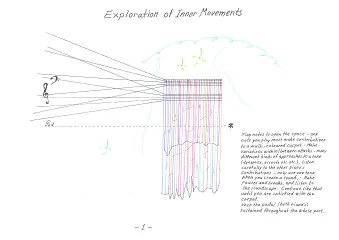 Exploration of Inner Movements
Ped
*
Play notes to open the space - any
note you play must make contributions
to a multi-coloured carpet. Make
variations within/between attacks - many
different kinds of approaches to a tone
(dynamics, accents etc. etc.), listen
carefully to the other piano's
contributions - only use one tone
when you create a sound. - Make
pauses and breaks, and listen to
the soundscape. Continue like that
until you are satisfied with the
carpet.
Keep the pedal (both pianos)
sustained throughout the whole part.
- 1 -